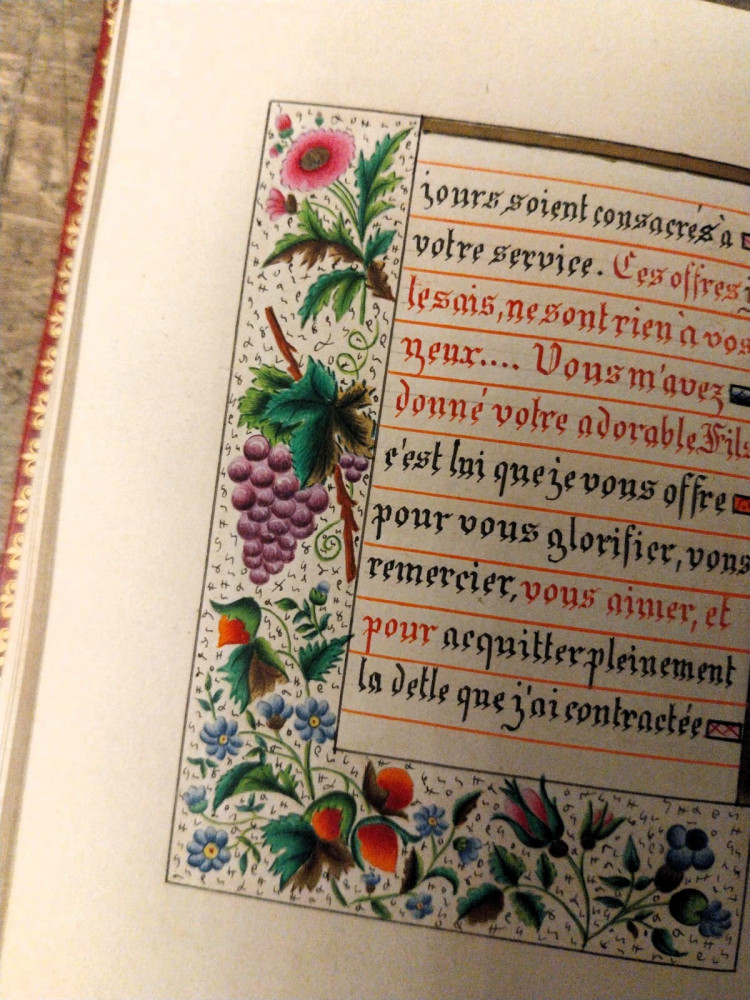 jours soient consacrés à
votre service. Ces offres
le sais, ne sont rien à vos
yeux.... Vous m'avez
donné votre adorable Fils
c'est lui que je vous offre
pour vous glorifier, vous
remercier, vous aimer, et
pour acquitter pleinement
la dette que j'ai contractée